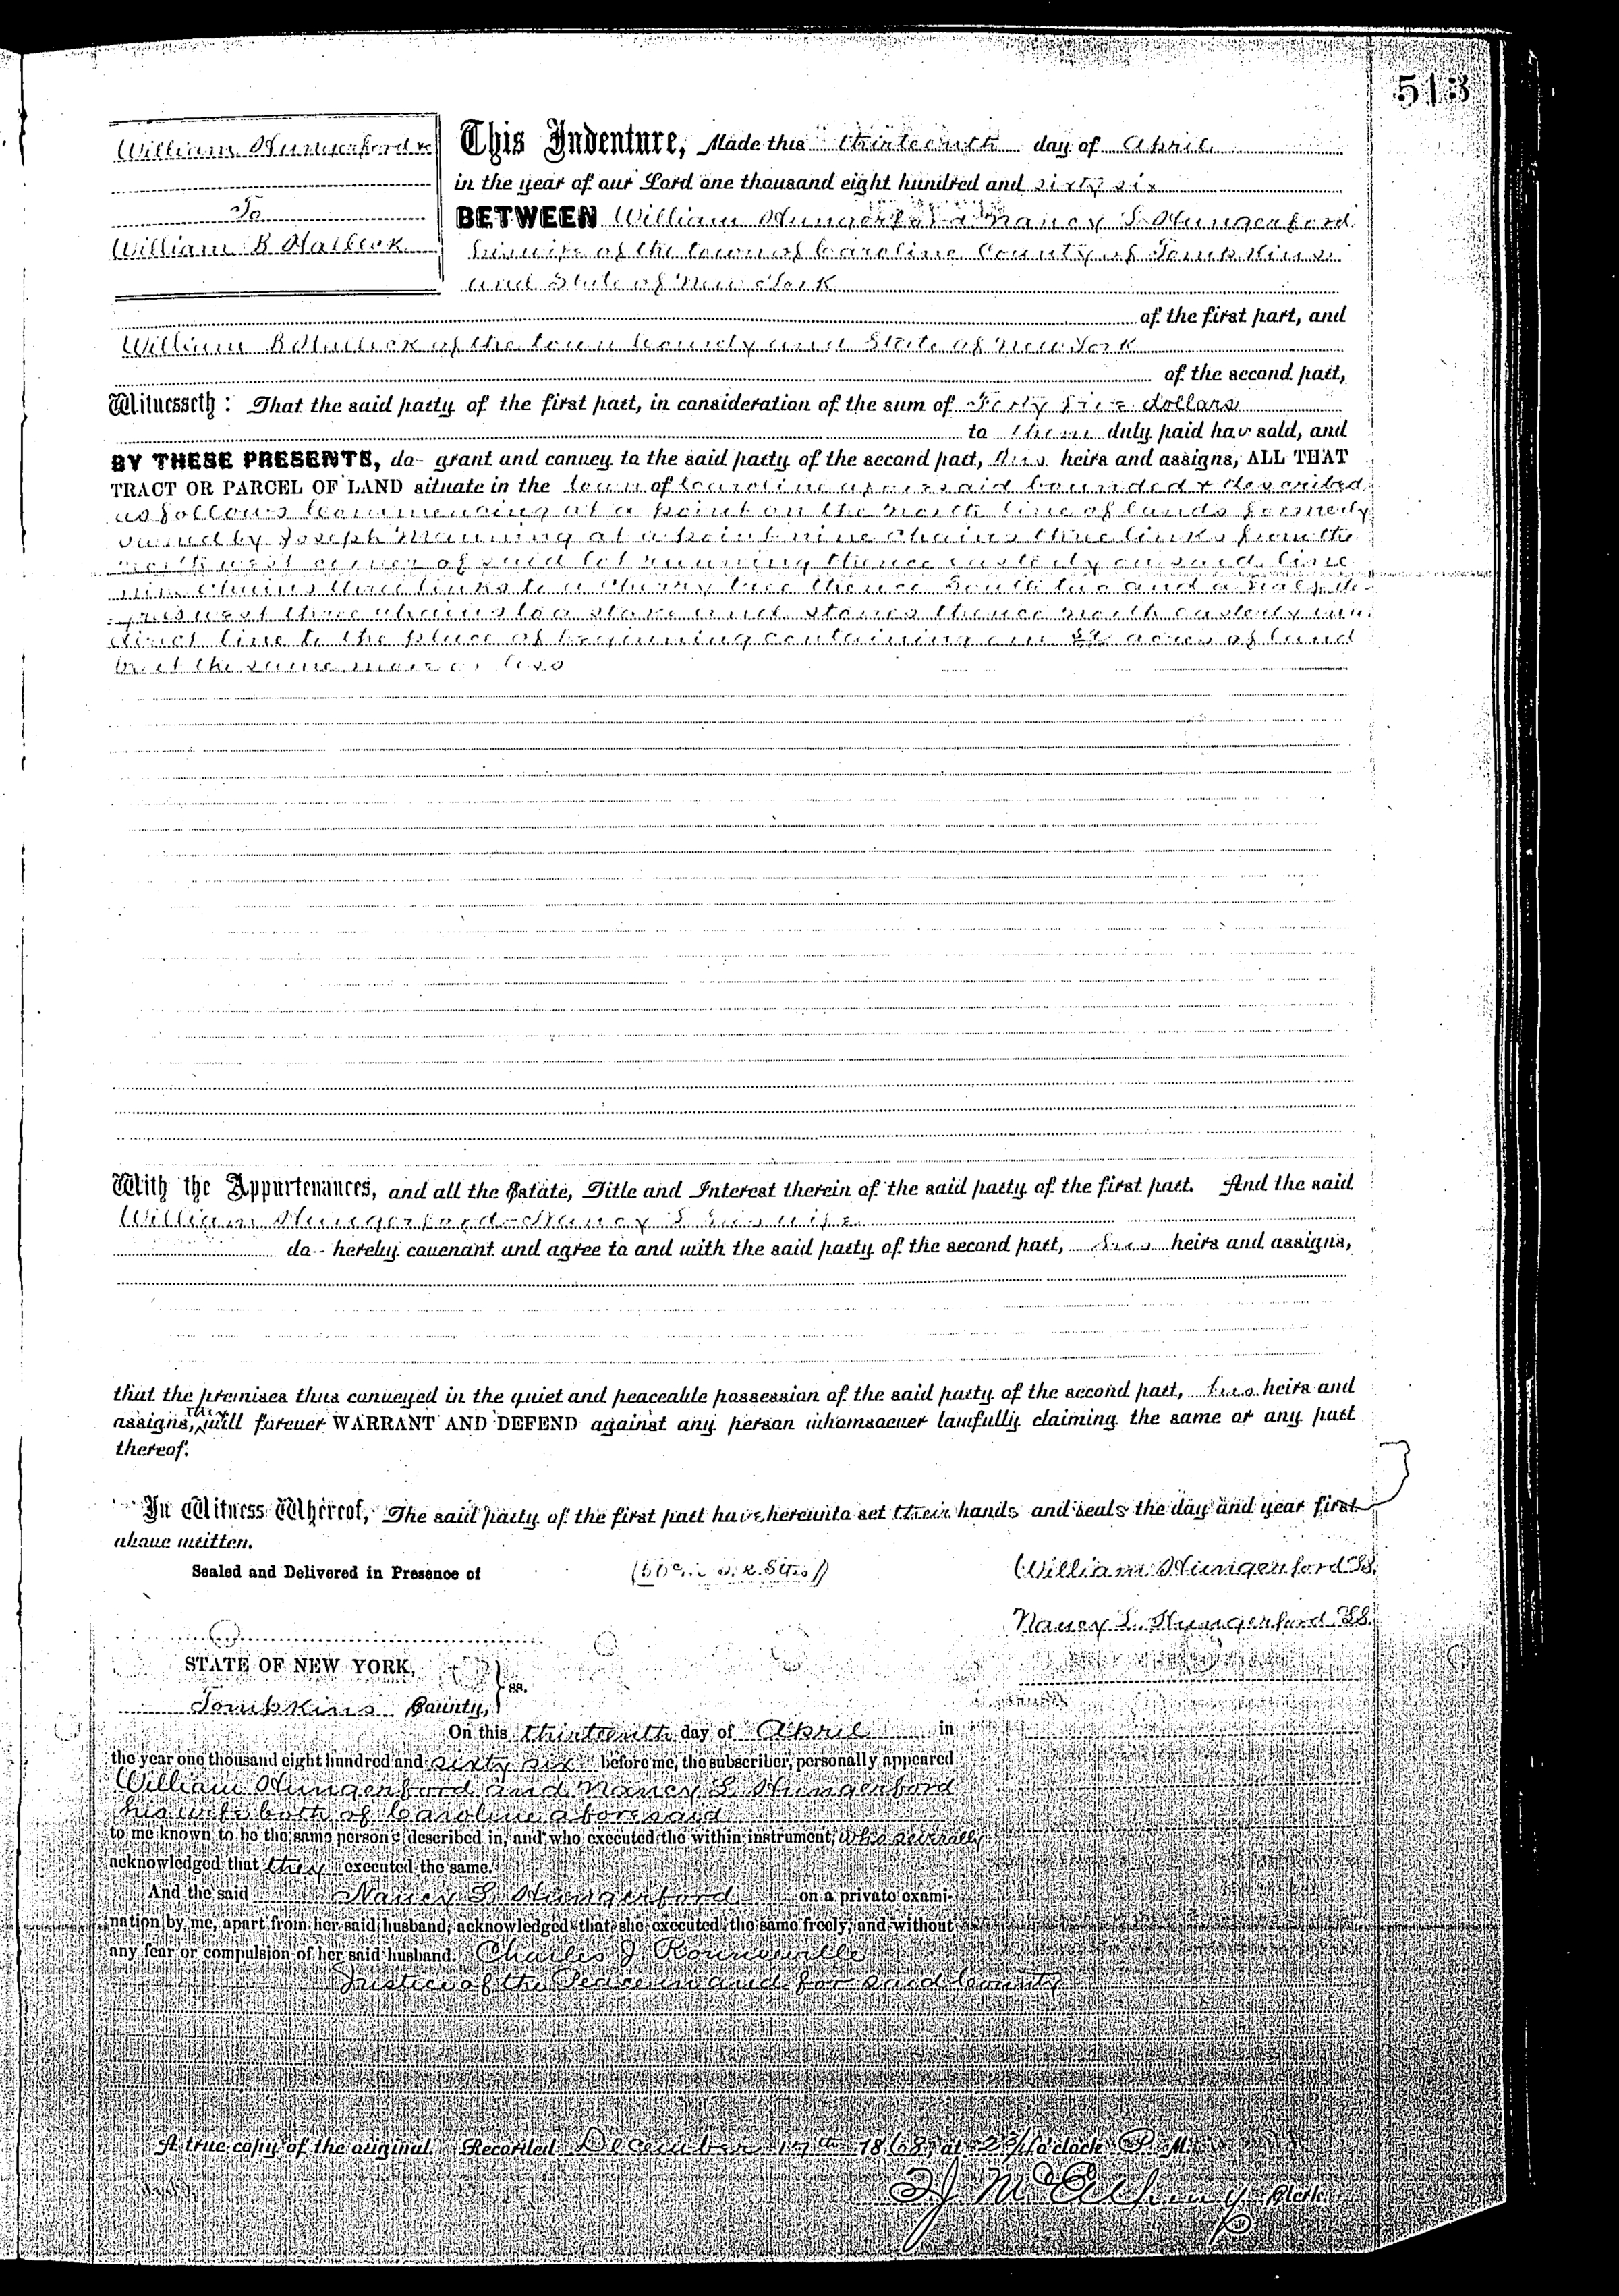 513
William Hungerford &c
To
William B Hallock
This Indenture, Made this thirteenth day of April
in the year of our Lord one thousand eight hundred and sixty six
BETWEEN William Hungerford & Nancy S. Hungerford
his wife of the town of Caroline County of Tompkins
and State of New York
of the first part, and
William B Hallock of the town County and State of New York
of the second part,
Witnesseth: That the said party of the first part, in consideration of the sum of Forty five dollars
to them duly paid hav sold, and
BY THESE PRESENTS, do grant and convey to the said party of the second part, his heirs and assigns, ALL THAT
TRACT OR PARCEL OF LAND situate in the town of Caroline aforesaid bounded & described
as follows Commencing at a point on the North line of lands formerly
owned by Joseph Manning at a point nine Chains three links from the
north west corner of said lot running thence easterly on said line
nine chains three links to a Cherry tree thence South two and a half de-
grees west three chains to a stake and stones thence north easterly in a
direct line to the place of beginning containing acres of land
be it the same more or less
With the Appurtenances, and all the Estate, Title and Interest therein of the said party of the first part. And the said
William Hungerford Nancy S. his wife
do hereby covenant and agree to and with the said party of the second part, his heirs and assigns,
that the premises thus conveyed in the quiet and peaceable possession of the said party of the second part, his heirs and
assigns, they will forever WARRANT AND DEFEND against any person whomsoever lawfully claiming the same or any part
thereof.
In Witness Whereof, The said party of the first part have hereunto set their hands and seals the day and year first
above written.
Sealed and Delivered in Presence of
William Hungerford LS.
Nancy S. Hungerford LS.
STATE OF NEW YORK,
Tompkins County, } ss.
On this thirteenth day of April in
the year one thousand eight hundred and sixty six before me, the subscriber, personally appeared
William Hungerford and Nancy S. Hungerford
his wife both of Caroline aforesaid
to me known to be the same persons described in, and who executed the within instrument, who severally
acknowledged that they executed the same.
And the said Nancy S. Hungerford on a private exami-
nation by me, apart from her said husband, acknowledged that she executed the same freely, and without
any fear or compulsion of her said husband. Charles J Rounseville
Justice of the Peace in and for said County
A true copy of the original. Recorded December 17th 1868, at 2 3/4 o'clock P. M.
Clerk.